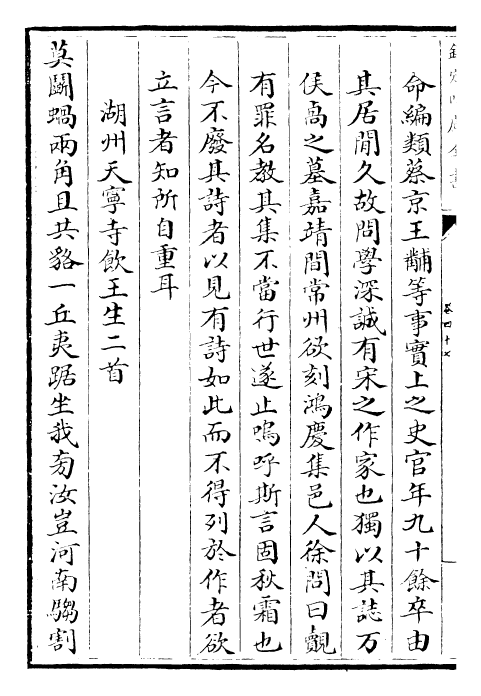 欽定四庫全書
卷四十七
命編類蔡京王黼等事實上之史官年九十餘卒由
其居閒久故問學深誠有宋之作家也獨以其誌万
俟卨之墓嘉靖間常州欲刻鴻慶集邑人徐問曰覿
有罪名教其集不當行世遂止嗚呼斯言固秋霜也
今不廢其詩者以見有詩如此而不得列於作者欲
立言者知所自重耳
湖州天寧寺飲王生二首
莫鬭蝸兩角且共貉一丘夷踞坐我旁汝豈河南騶割